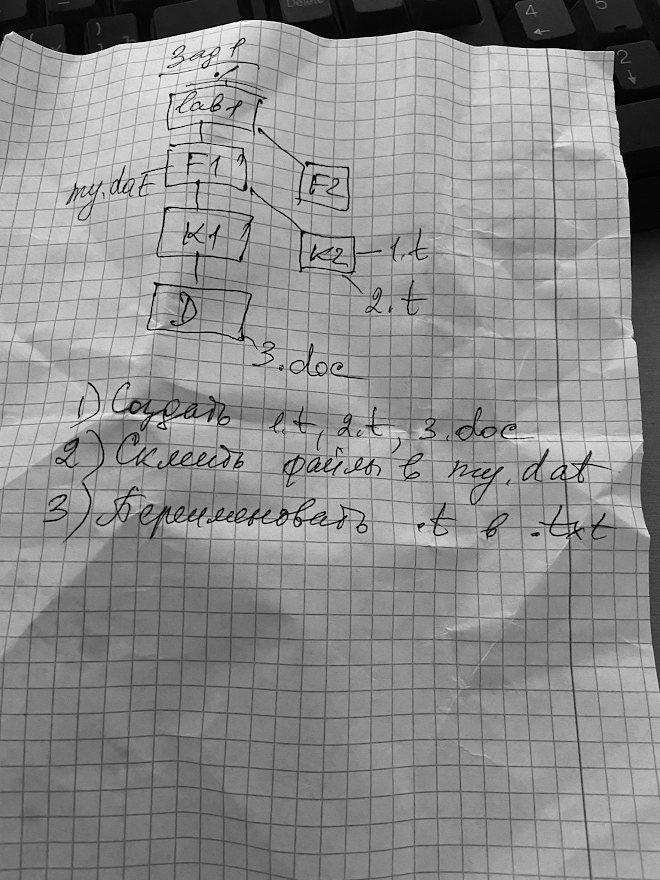 Зад 1
lab1
F1
F2
my.dat
K1
K2
1.t
2.t
D
3.doc
1) Создать 1.t, 2.t, 3.doc
2) Склеить файлы в my.dat
3) Переименовать .t в .txt
Delete
4
5
2